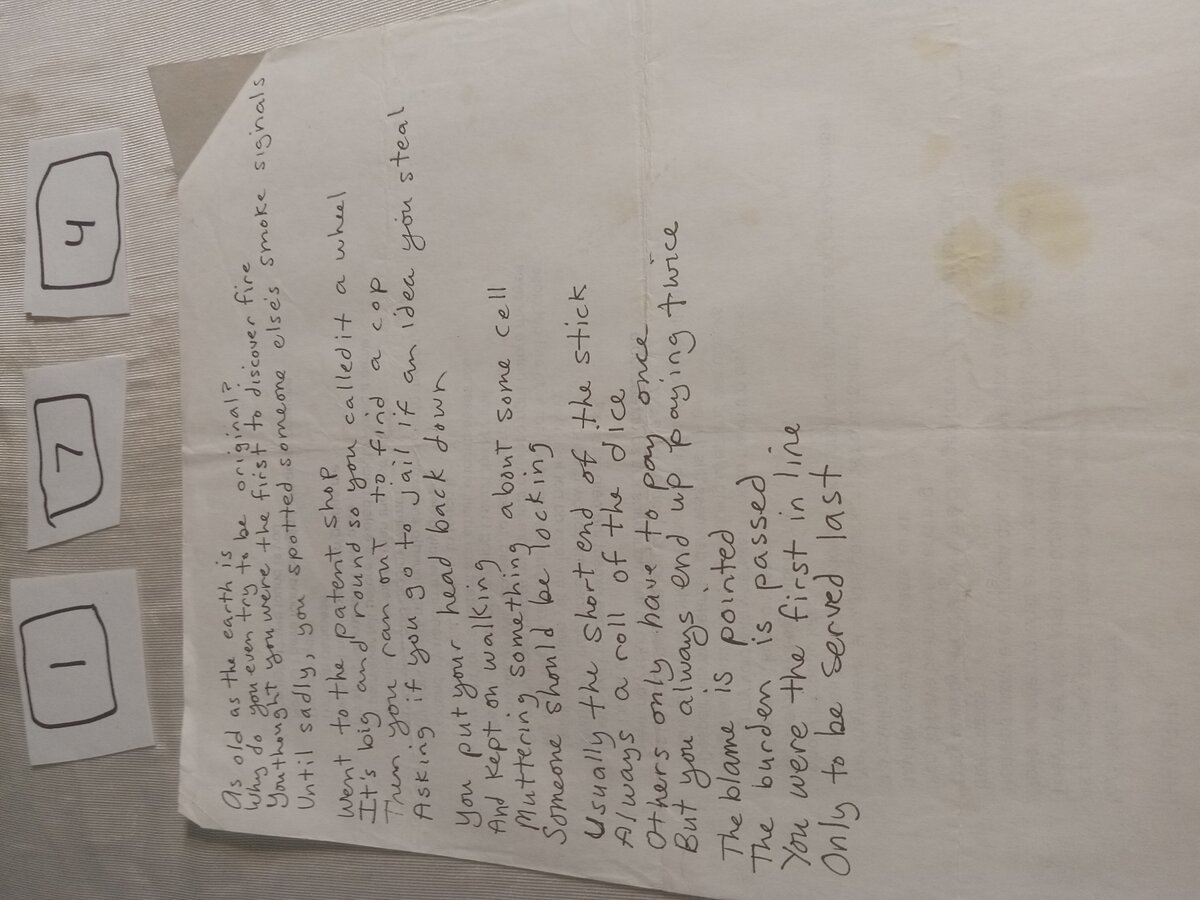 1
7
4
As old as the earth is
Why do you even try to be original?
You thought you were the first to discover fire
Until sadly, you spotted someone else's smoke signals
Went to the patent shop
It's big and round so you called it a wheel
Then you ran out to find a cop
Asking if you go to jail if an idea you steal
You put your head back down
And kept on walking
Muttering something about some cell
Someone should be locking
Usually the short end of the stick
Always a roll of the dice
Others only have to pay once
But you always end up paying twice
The blame is pointed
The burden is passed
You were the first in line
Only to be served last